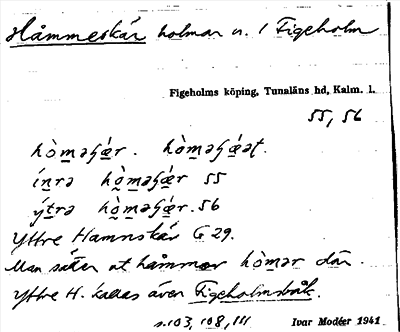 Håmmeskär holmar n. / Figeholm
Figeholms köping, Tunaläns hd, Kalm. l.
55, 56
hòməʃǽr. hòməʃǽət.
ínrə hòməʃǽr 55
ýtrə hòməʃǽr. 56
Yttre Hamnskär G 29.
Man sätter ut håmmar hòmər där.
Yttre H. kallas även Figeholmsbåk.
s. 103, 108, 111 Ivar Modéer 1941